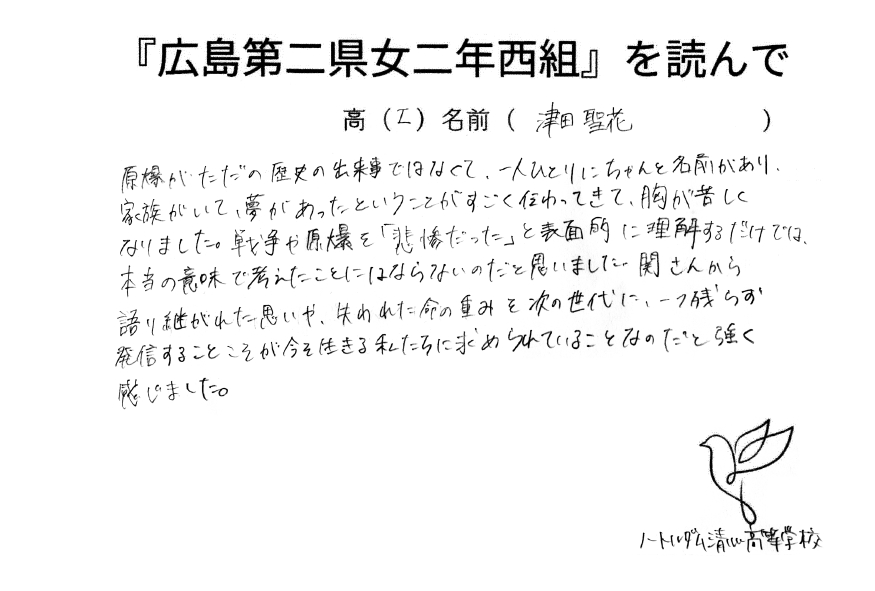 『広島第二県女二年西組』を読んで
高（I）名前（ 津田 聖花 ）
原爆がただの歴史の出来事ではなくて、一人ひとりにちゃんと名前があり、
家族がいて、夢があったということがすごく伝わってきて、胸が苦しく
なりました。戦争や原爆を「悲惨だった」と表面的に理解するだけでは、
本当の意味で考えたことにはならないのだと思いました。関さんから
語り継がれた思いや、失われた命の重みを次の世代に、一つ残らず
発信することこそが今を生きる私たちに求められていることなのだと強く
感じました。
ノートルダム清心高等学校